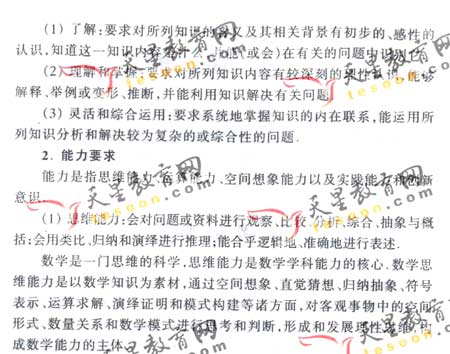 (1) 了解:要求对所列知识的含义及其相关背景有初步的、感性的
认识,知道这一知识内容是什么,
或会)在有关的问题中识别它.
(2) 理解和掌握:要求对所列知识内容有较深刻的理性认识,能够
解释、举例或变形、推断,并能利用知识解决有关问题.
(3) 灵活和综合运用:要求系统地掌握知识的内在联系,能运用所
列知识分析和解决较为复杂的或综合性的问题.
2. 能力要求
能力是指思维能力、运算能力、空间想象能力以及实践能力和创新
意识.
(1) 思维能力:会对问题或资料进行观察、比较、分析、综合、抽象与概
括;会用类比、归纳和演绎进行推理;能合乎逻辑地、准确地进行表述.
数学是一门思维的科学,思维能力是数学学科能力的核心.数学思
维能力是以数学知识为素材,通过空间想象、直觉猜想、归纳抽象、符号
表示、运算求解、演绎证明和模式构建等诸方面,对客观事物中的空间
形式、数量关系和数学模式进行思考和判断,形成和发展理性思维,构
成数学能力的主体.
天星教育网
tesoon.com
天星教育网
tesoon.com
天星教育网
tesoon.com
天星教育网
tesoon.com